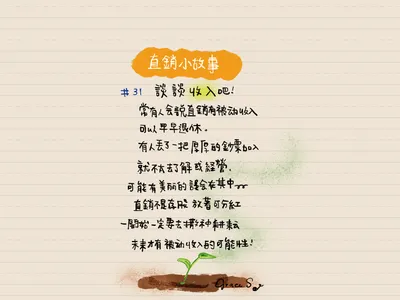 直銷小故事
#31 談談收入吧!
常有人會說直銷有被动收入
可以早早退休。
有人丟了一把厚厚的鈔票加入
就不去了解或經營,
可能有美丽的誤会在其中
直銷不是存股 放著可分紅
一開始一定要去撒种耕耘
未來才有被动收入的可能性!
Grace S